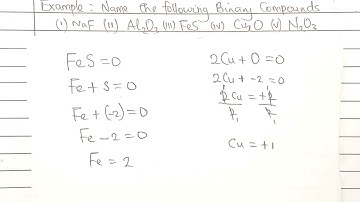 Example: Name the following Binary Compounds
(i) NaF (ii) Al₂O₃ (iii) FeS (iv) Cu₂O (v) N₂O₃
FeS = 0
Fe + S = 0
Fe + (-2) = 0
Fe - 2 = 0
Fe = 2
2Cu + O = 0
2Cu + -2 = 0
2Cu = +2
2 1 2 1
Cu = +1